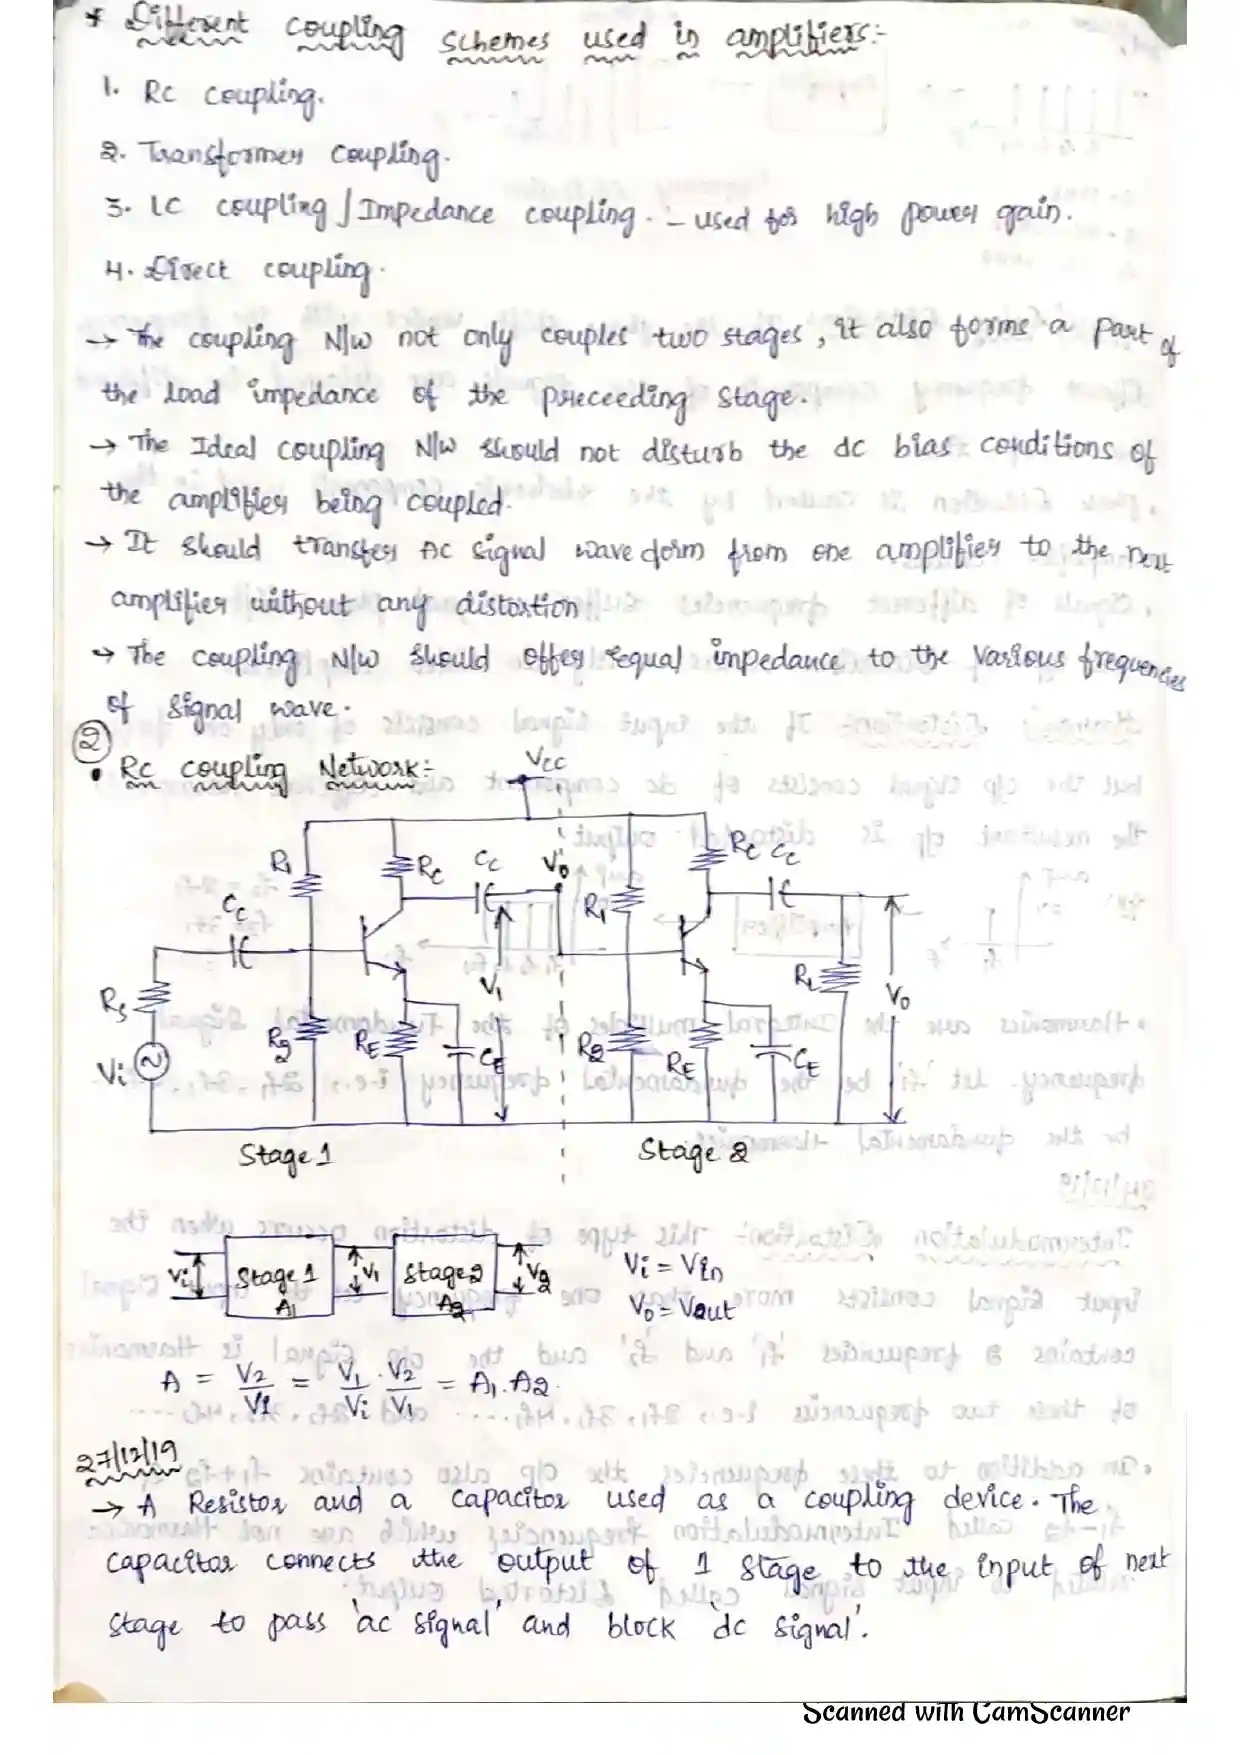 * Different coupling schemes used in amplifiers:-
1. Rc coupling.
2. Transformer coupling.
3. LC coupling / Impedance coupling. - used for high power gain.
4. Direct coupling.
→ The coupling N/w not only couples two stages, it also forms a part of
the load impedance of the preceeding stage.
→ The Ideal coupling N/w should not disturb the dc bias conditions of
the amplifier being coupled.
→ It should transfer AC signal wave form from one amplifier to the next
amplifier without any distortion
→ The coupling N/w should offer equal impedance to the various frequencies
of signal wave.
2
• Rc coupling Network:-
Vcc
R1 Rc Cc Vo' Rc Cc
Cc R1
Rs V1 RL Vo
R2 RE CE R2 RE CE
Vi
Stage 1 Stage 2
Vi Stage 1 V1 Stage 2 V2 Vi = Vin
A1 A2 Vo = Vout
A = V2/Vi = V1/Vi . V2/V1 = A1. A2
27/12/19
→ A Resistor and a capacitor used as a coupling device. The
capacitor connects the output of 1 stage to the input of next
stage to pass 'ac signal' and block 'dc signal'.
Scanned with CamScanner